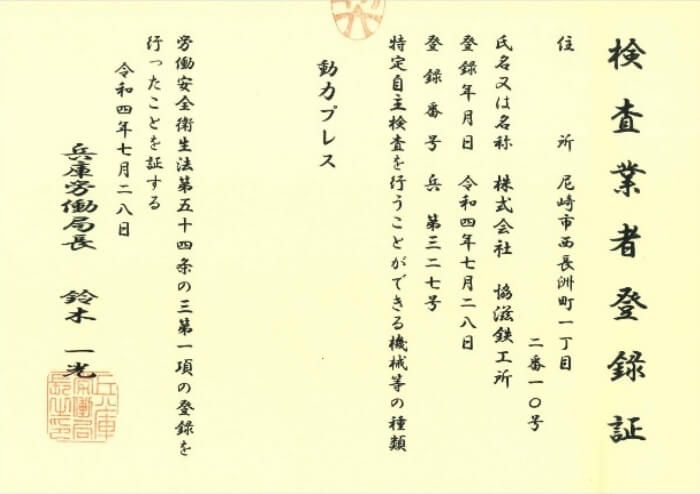 検査業者登録証
住所 尼崎市西長洲町一丁目
二番一〇号
氏名又は名称 株式会社 協滋鉄工所
登録年月日 令和四年七月二八日
登録番号 兵 第三二七号
特定自主検査を行うことができる機械等の種類
動力プレス
労働安全衛生法第五十四条の三第一項の登録を
行ったことを証する
令和四年七月二八日
兵庫労働局長 鈴木 一光
兵庫
労働局
長之印